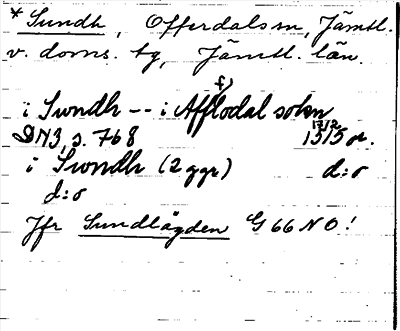 * Sundh, Offerdals sn, Jämtl.
v. doms. tg, Jämtl. län.
i Swndh -- i Afflodal sokn
DN3, s. 768 1315 or.
i Swondh (2 ggr) d:o
d:o
Jfr Sundlägden G 66 NO!